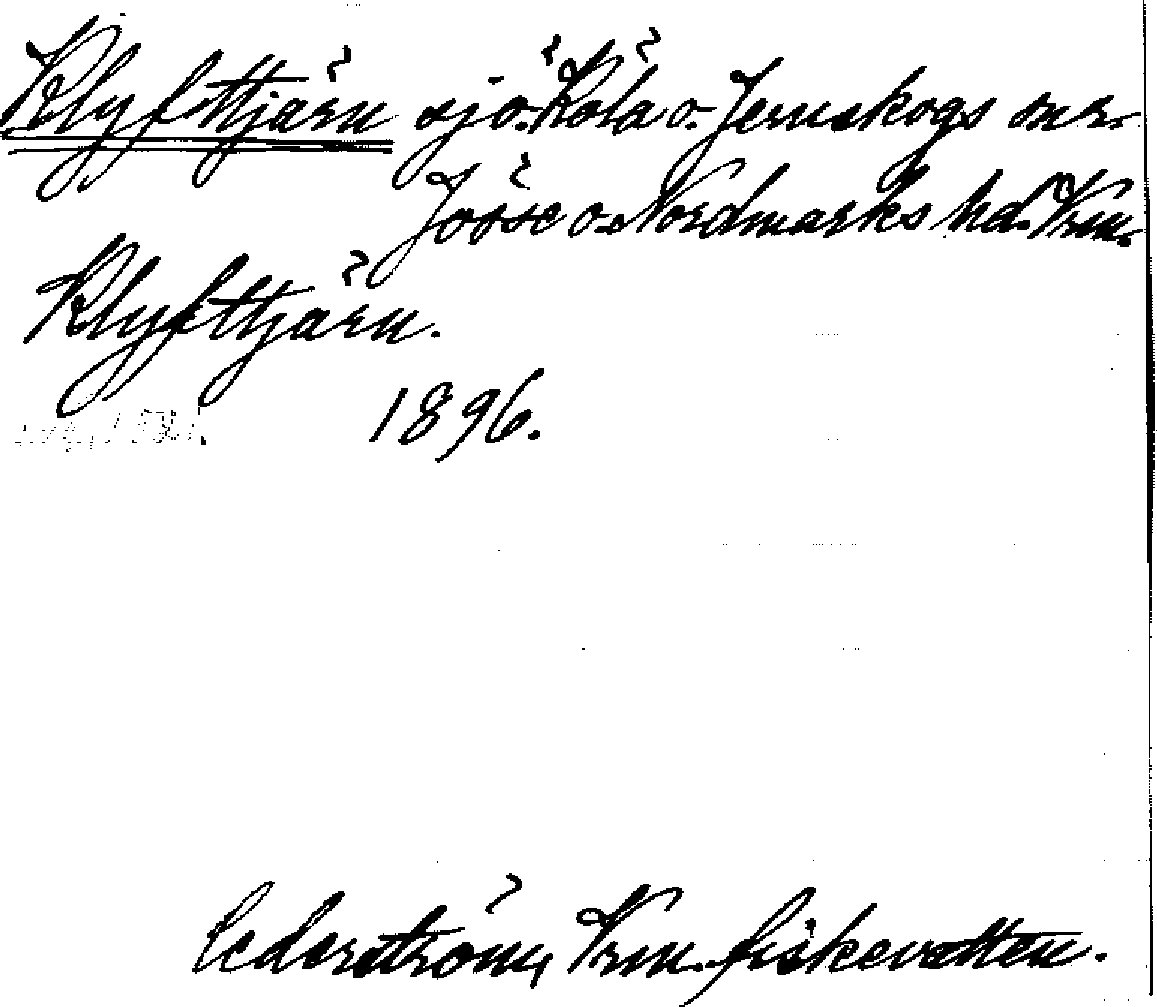 Klyfttjärn sjö. Köla o. Jernskogs snr.
Jösse o. Nordmarks hd. Vrm.
Klyfttjärn.
1896.
Cederström, Vrm. fiskevatten.